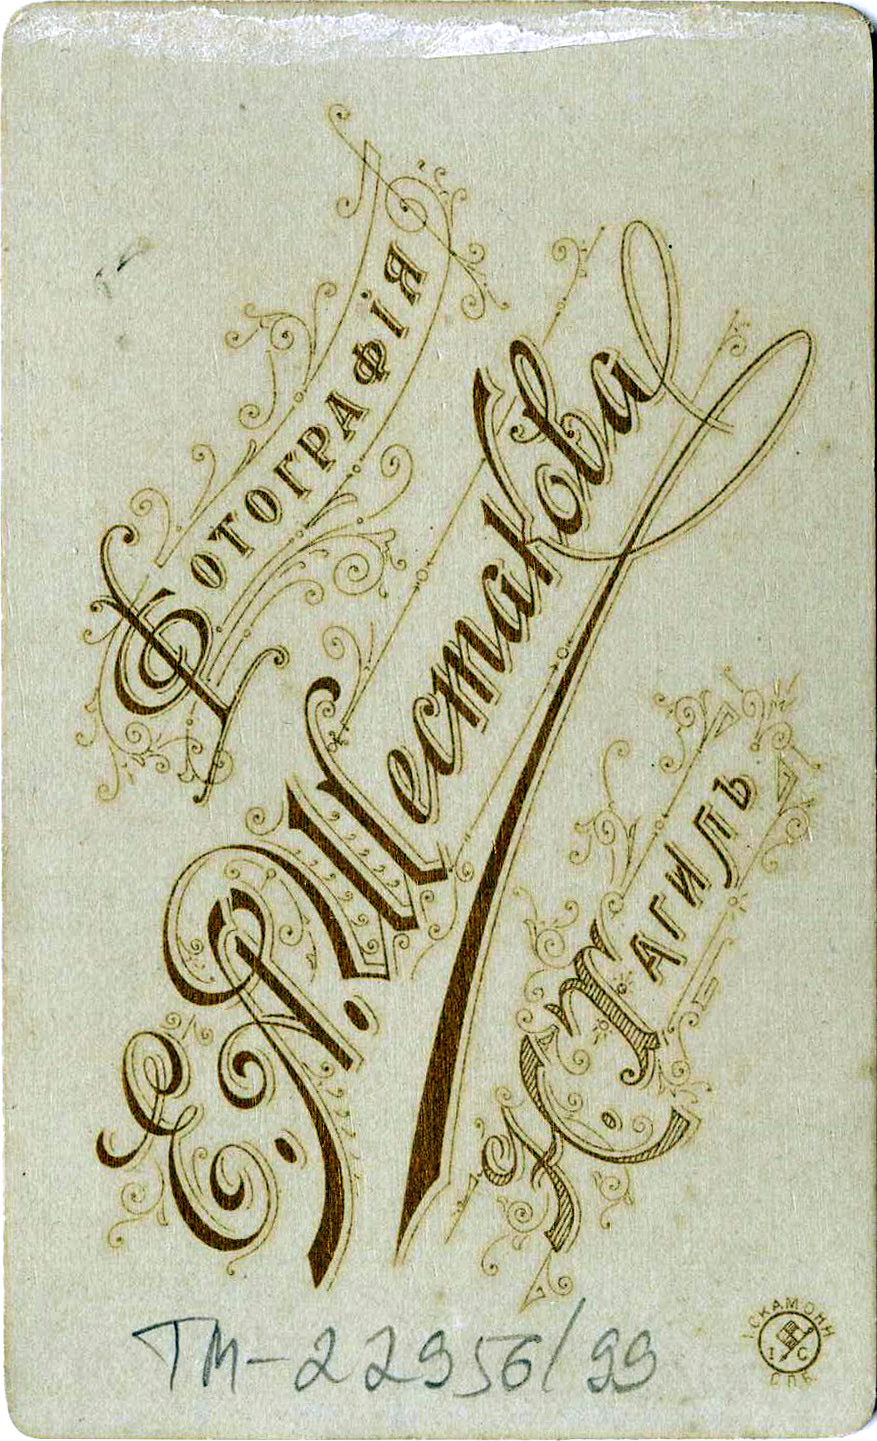 Фотографія
Е. Шестакова
Н. Тагилъ
ТМ-22956/99
І. СКАМОНИ
І С
СПБ.